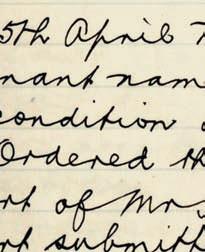 5th April
nant name
condition
Ordered th
rt of Mrs
rt submitt